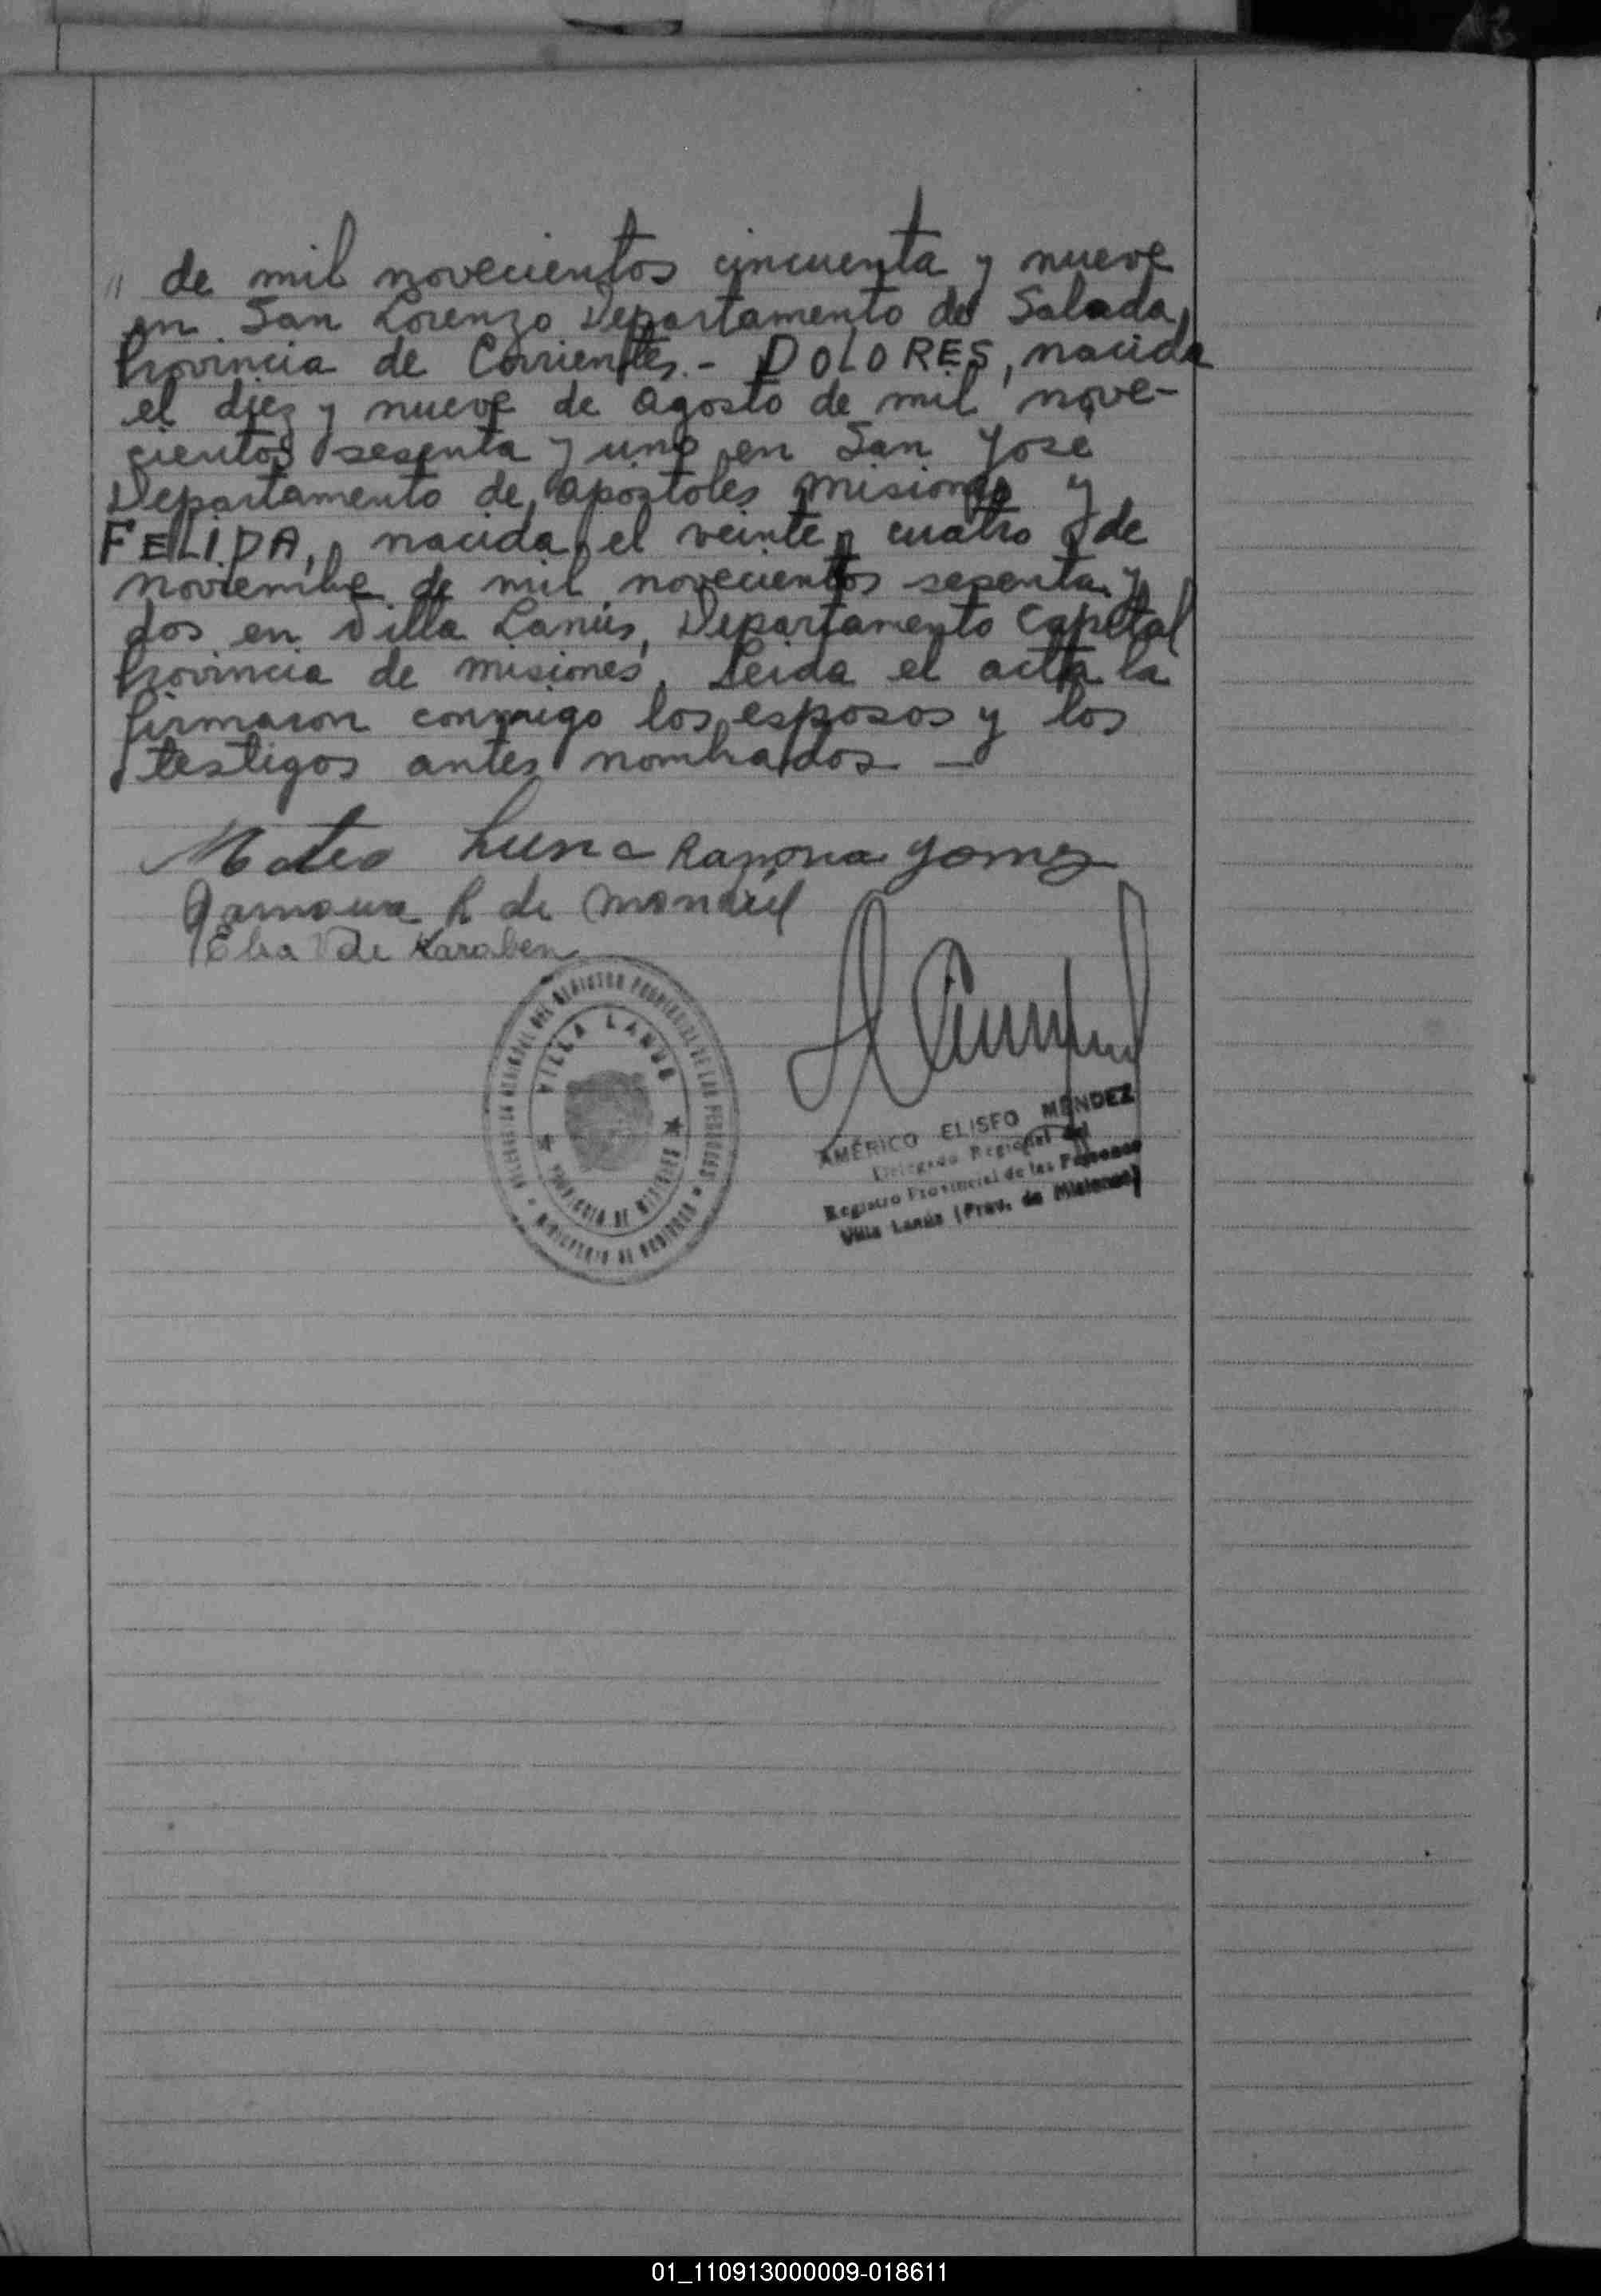 " de mil novecientos cincuenta y nueve
en San Lorenzo Departamento de Salada,
Provincia de Corrientes.- DOLORES, nacida
el diez y nueve de agosto de mil nove-
cientos sesenta y uno en San José
Departamento de Apostoles Misiones y
FELIPA, nacida el veinte y cuatro de
noviembre de mil novecientos sesenta y
dos en Villa Lanús, Departamento Capital
Provincia de Misiones. Leida el acta la
firmaron conmigo los esposos y los
testigos antes nombrados.-
Mateo Luna Ramona Gomez
de
Elsa de Karaben
VILLA LANUS
PROVINCIA DE MISIONES
MINISTERIO DE GOBIERNO
AMÉRICO ELISEO MÉNDEZ
Delegado Regional del
Registro Provincial de las Personas
Villa Lanús (Prov. de Misiones)
01_110913000009-018611